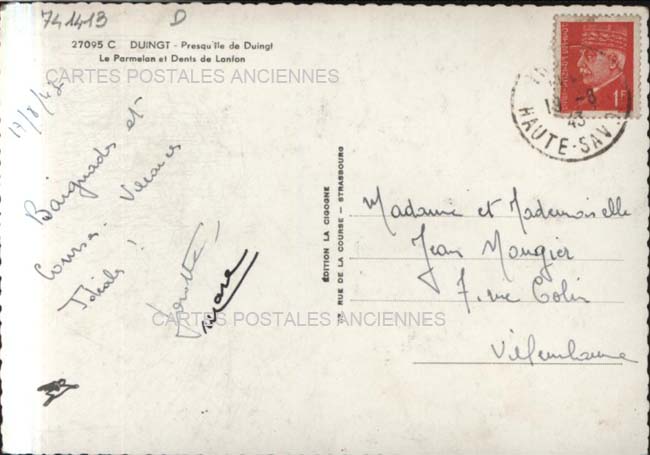 741413 D
27095 C DUINGT - Presqu'île de Duingt
Le Parmelan et Dents de Lanfon
CARTES POSTALES ANCIENNES
17/8/43
Baignades et
Courses. Vacances
Idéales !
CARTES POSTALES ANCIENNES
ÉDITION LA CIGOGNE
RUE DE LA COURSE - STRASBOURG
1F
19 -8
43
HAUTE-SAV
Madame et Mademoiselle
Jean Mougier
7, rue Colin
Villeurbanne